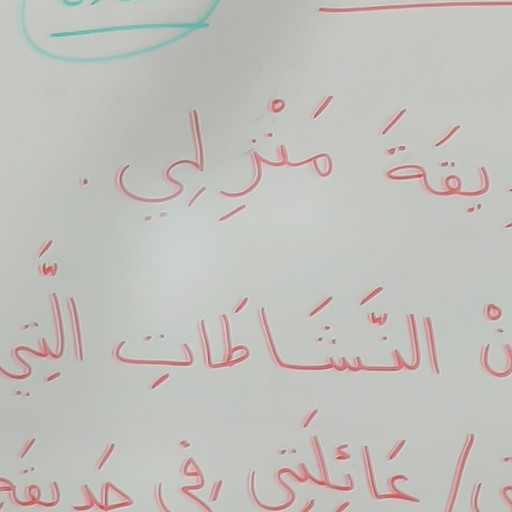 يقَةَ مَنْزِلِي .
نْ النَّشَاطَاتِ الَّتِي
/ عَائِلَتِي فِي حَديقَة